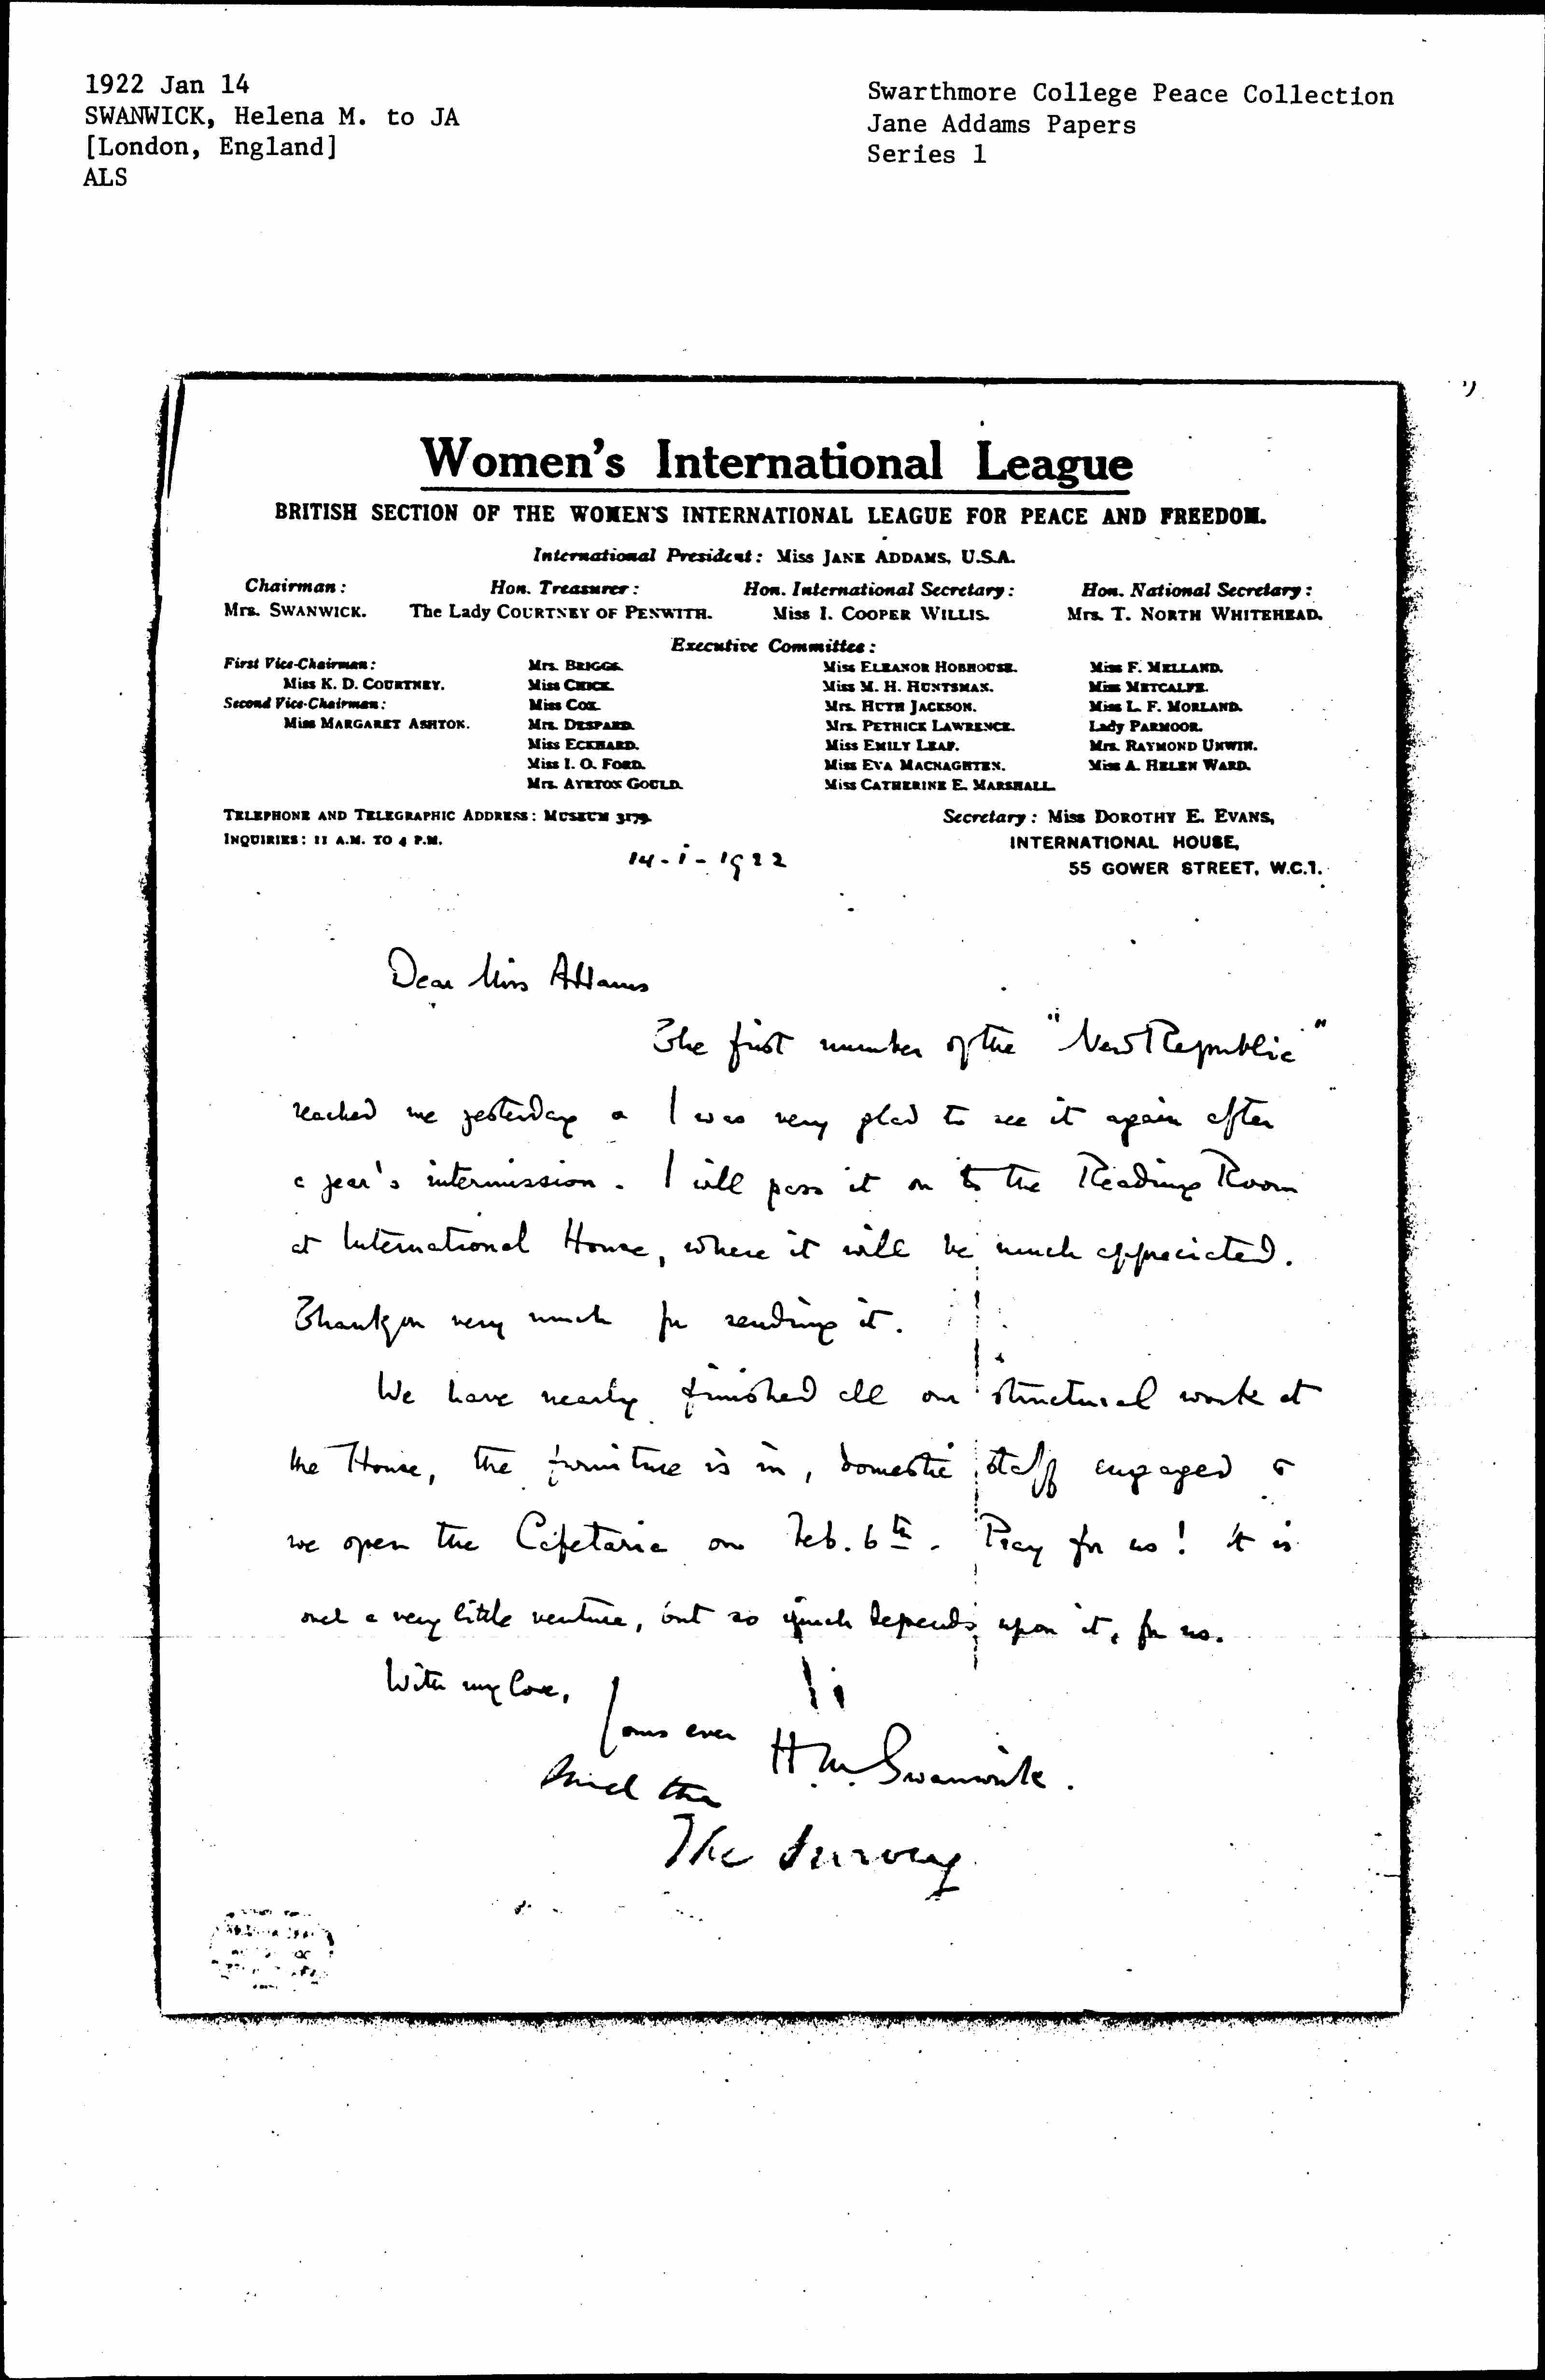 1922 Jan 14
SWANWICK, Helena M. to JA
[London, England]
ALS
Swarthmore College Peace Collection
Jane Addams Papers
Series 1
Women's International League
BRITISH SECTION OF THE WOMEN'S INTERNATIONAL LEAGUE FOR PEACE AND FREEDOM.
International President: Miss JANE ADDAMS, U.S.A.
Chairman: Hon. Treasurer: Hon. International Secretary: Hon. National Secretary:
Mrs. SWANWICK. The Lady COURTNEY OF PENWITH. Miss I. COOPER WILLIS. Mrs. T. NORTH WHITEHEAD.
Executive Committee:
First Vice-Chairman: Mrs. BRIGGS. Miss ELEANOR HOBHOUSE. Miss F. MELLAND.
Miss K. D. COURTNEY. Miss CHICK. Miss M. H. HUNTSMAN. Miss METCALFE.
Second Vice-Chairman: Miss COX. Mrs. HUTH JACKSON. Miss L. F. MORLAND.
Miss MARGARET ASHTON. Mrs. DESPARD. Mrs. PETHICK LAWRENCE. Lady PARMOOR.
Miss ECKHARD. Miss EMILY LEAF. Mrs. RAYMOND UNWIN.
Miss I. O. FORD. Miss EVA MACNAGHTEN. Miss A. HELEN WARD.
Mrs. AYRTON GOULD. Miss CATHERINE E. MARSHALL.
TELEPHONE AND TELEGRAPHIC ADDRESS: MUSEUM 3179.
INQUIRIES: 11 A.M. TO 4 P.M.
Secretary: Miss DOROTHY E. EVANS,
INTERNATIONAL HOUSE,
55 GOWER STREET, W.C.1.
14-i-1922
Dear Miss Addams
The first number of the "New Republic"
reached me yesterday & I was very glad to see it again after
a year's intermission. I will pass it on to the Reading Room
at International House, where it will be much appreciated.
Thank you very much for sending it.
We have nearly finished all our structural work at
the House, the furniture is in, domestic staff engaged &
we open the Cafetaria on Feb. 6th. Pray for us! it is
such a very little venture, but so much depends upon it, for us.
With my love,
Yours ever
H.M. Swanwick.
the
The Survey